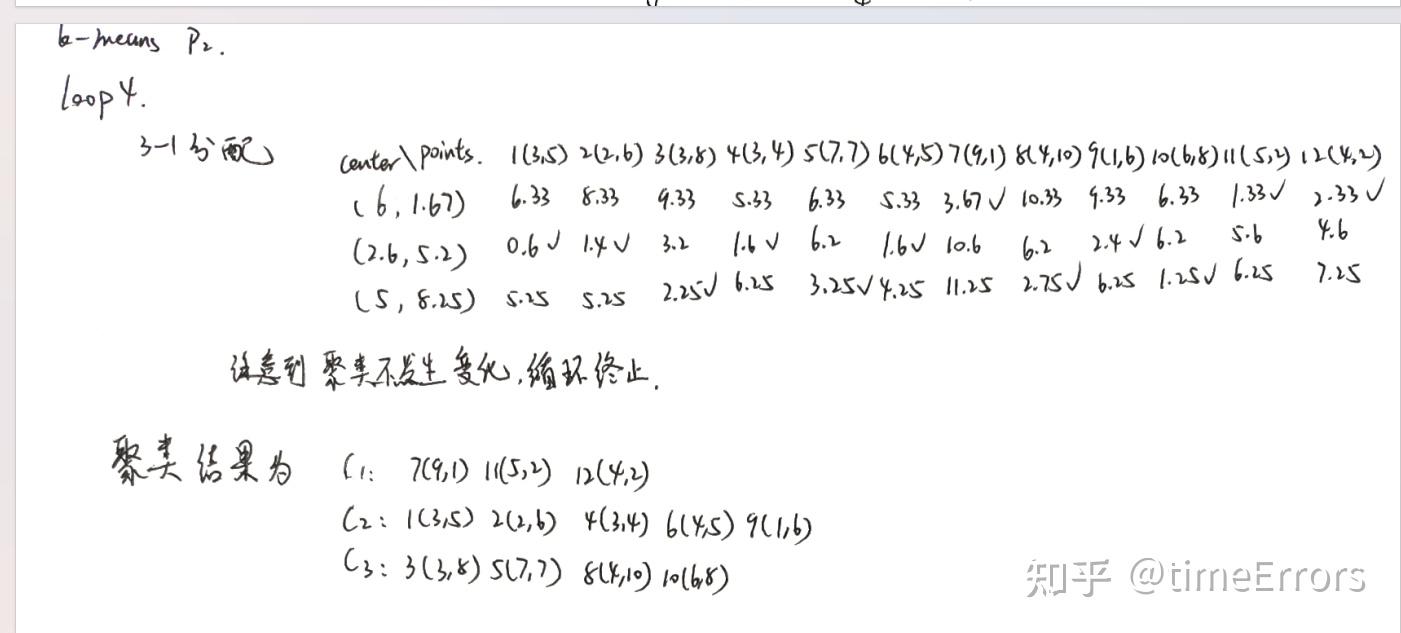 k-means P2.
loop 4.
3-1分配 center\points. 1(3,5) 2(2,6) 3(3,8) 4(3,4) 5(7,7) 6(4,5) 7(9,1) 8(4,10) 9(1,6) 10(6,8) 11(5,2) 12(4,2)
(6, 1.67) 6.33 8.33 9.33 5.33 6.33 5.33 3.67✓ 10.33 9.33 6.33 1.33✓ 2.33✓
(2.6, 5.2) 0.6✓ 1.4✓ 3.2 1.6✓ 6.2 1.6✓ 10.6 6.2 2.4✓ 6.2 5.6 4.6
(5, 8.25) 5.25 5.25 2.25✓ 6.25 3.25✓ 4.25 11.25 2.75✓ 6.25 1.25✓ 6.25 7.25
注意到聚类不发生变化,循环终止.
聚类结果为 C1: 7(9,1) 11(5,2) 12(4,2)
C2: 1(3,5) 2(2,6) 4(3,4) 6(4,5) 9(1,6)
C3: 3(3,8) 5(7,7) 8(4,10) 10(6,8)
知乎 @timeErrors